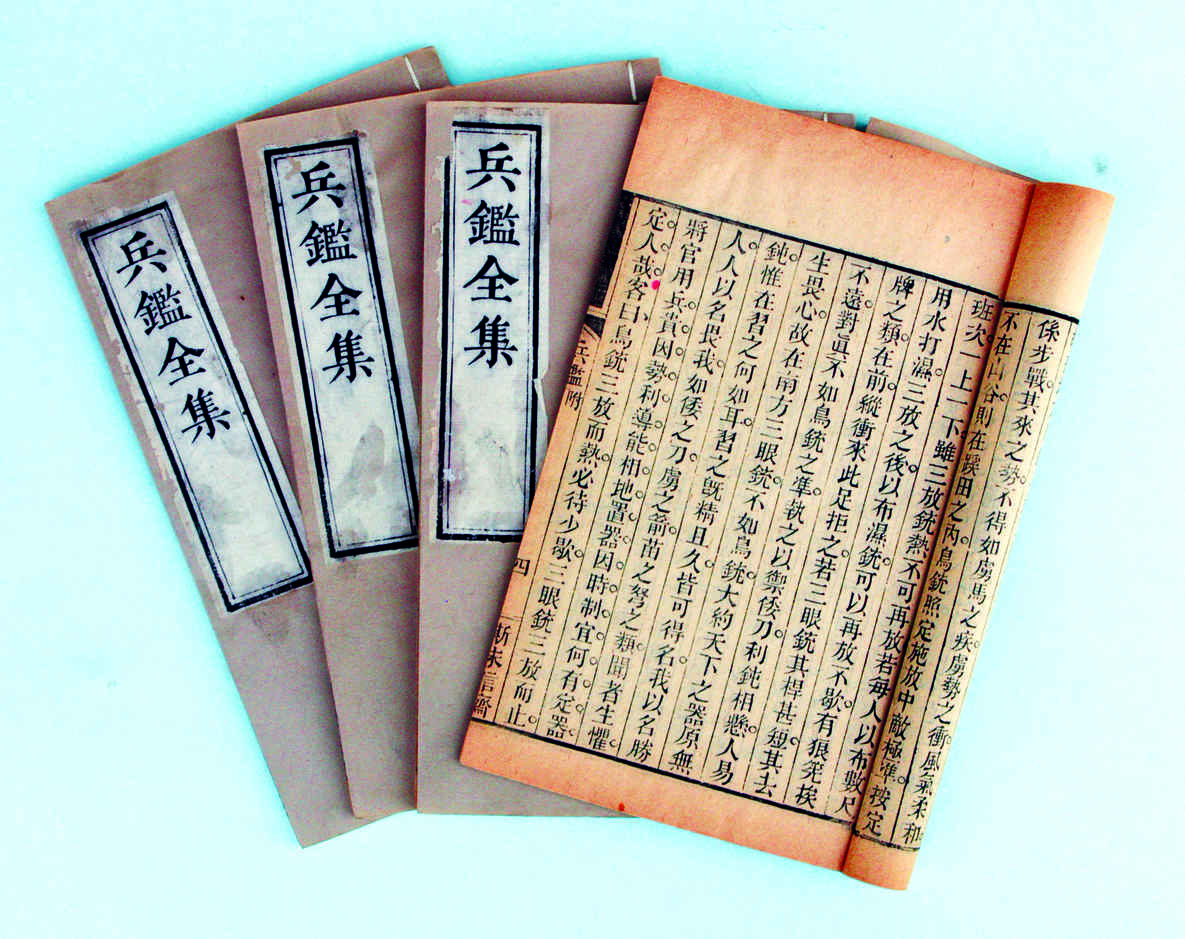 兵鑑全集
兵鑑全集
兵鑑全集
係步戰其來之勢不得如虜馬之疾虜勢之衝風氣柔和
不在山谷則在蹊田之內鳥銃照定施放中敵極準按定
班次一上一下雖三放銃熱不可再放若每人以布數尺
用水打濕三放之後以布濕銃可以再放不歇有狼筅挨
牌之類在前縱衝來此足拒之若三眼銃其桿甚短其去
不遠對眞不如鳥銃之準執之以禦倭刀利鈍相懸人易
生畏心故在南方三眼銃不如鳥銃大約天下之器原無
鈍惟在習之何如耳習之旣精且久皆可得名我以名勝
人人以名畏我如倭之刀虜之箭苗之弩之類聞者生懼
將官用兵貴因勢利導能相地置器因時制宜何有定器
定人哉客曰鳥銃三放而熱必待少歇三眼銃三放而止
兵鑑附 四 斯未信齋